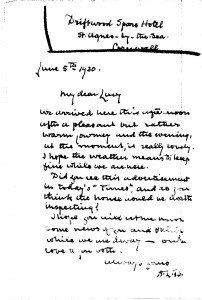 Driftwood Spars Hotel
St. Agnes-by-the-Sea.
Cornwall
June 5th 1930.
My dear Lucy
We arrived here this afternoon
after a pleasant but rather
warm journey and the evening,
at the moment, is really lovely.
I hope the weather means to keep
fine while we are here.
Did you see this advertisement
in today's "Times", and do you
think the house would be worth
inspecting?
I hope you will let me have
some news of you and
while we are away — our
love to you both.
Always yours